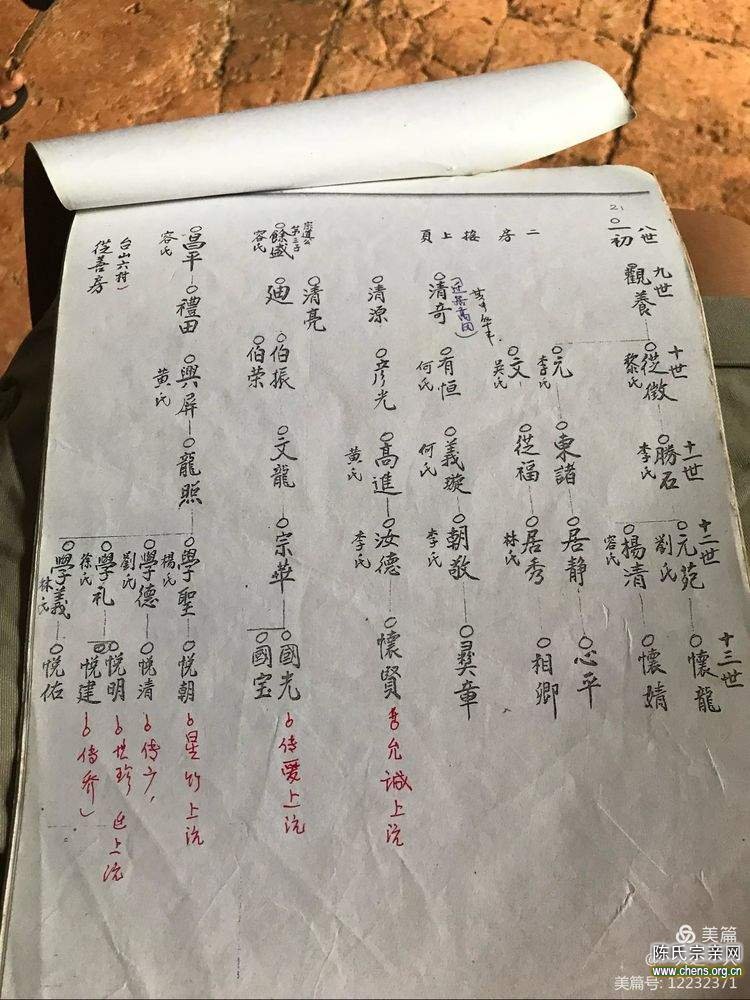 21
八世
一初
九世
觀養
十世
從徵
黎氏
十一世
勝石
李氏
十二世
元苑
劉氏
揚清
容氏
十三世
懷龍
懷婧
二房接上頁
元
李氏
東諸
居静
心平
文
吴氏
從福
居秀
林氏
相卿
清奇
有恒
何氏
義璇
何氏
朝敬
李氏
彛章
清源
彦光
高進
黄氏
汝德
李氏
懷賢
允誠上沅
清亮
宗道公
第三子
餘盛
容氏
廸
伯振
伯荣
文龍
宗華
國光
國宝
傳愛上沅
昌平
容氏
禮田
興屏
黄氏
龍照
學聖
楊氏
學德
劉氏
學礼
徐氏
學義
林氏
悦朝
悦清
悦明
悦建
悦佑
星竹上沅
世珍
上沅
台山六村
從善房
美篇
陈氏宗亲网
www.chens.org.cn
美篇号: 12232371